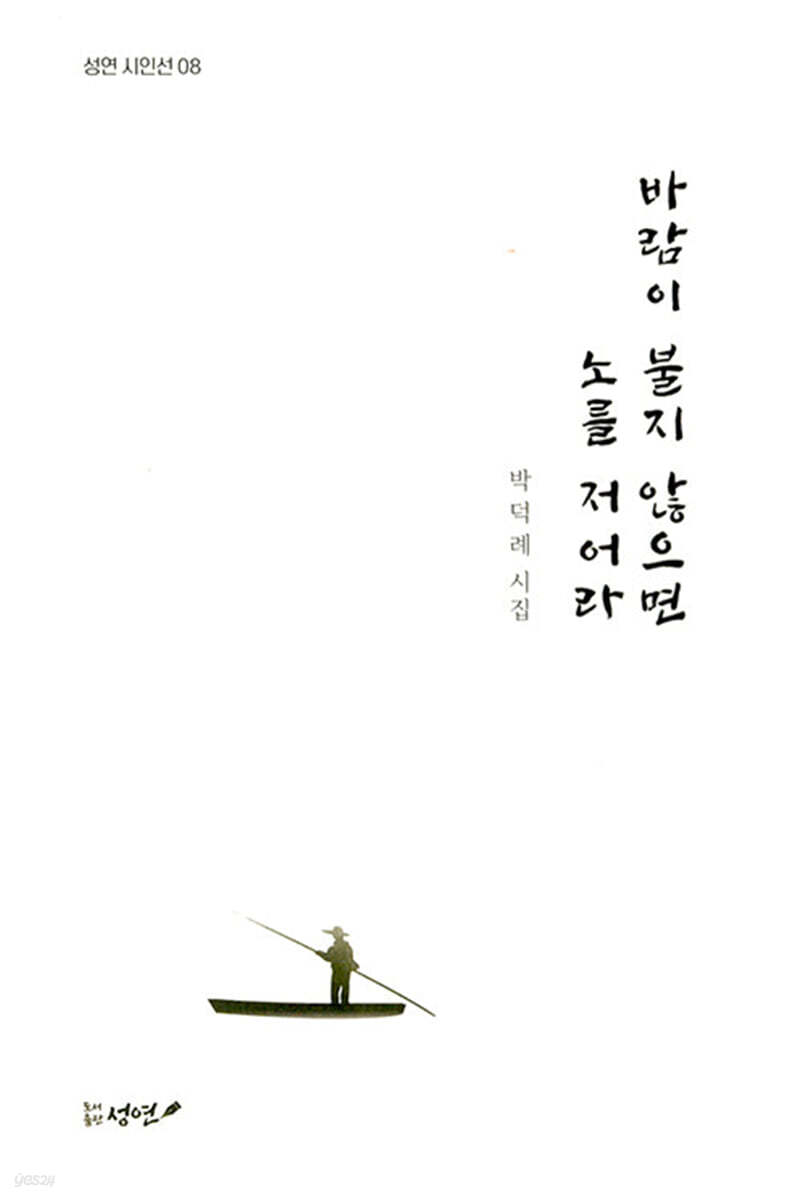 성연 시인선 08
바람이 불지 않으면
노를 저어라
박덕례 시집
도서
출판 성연
yes24